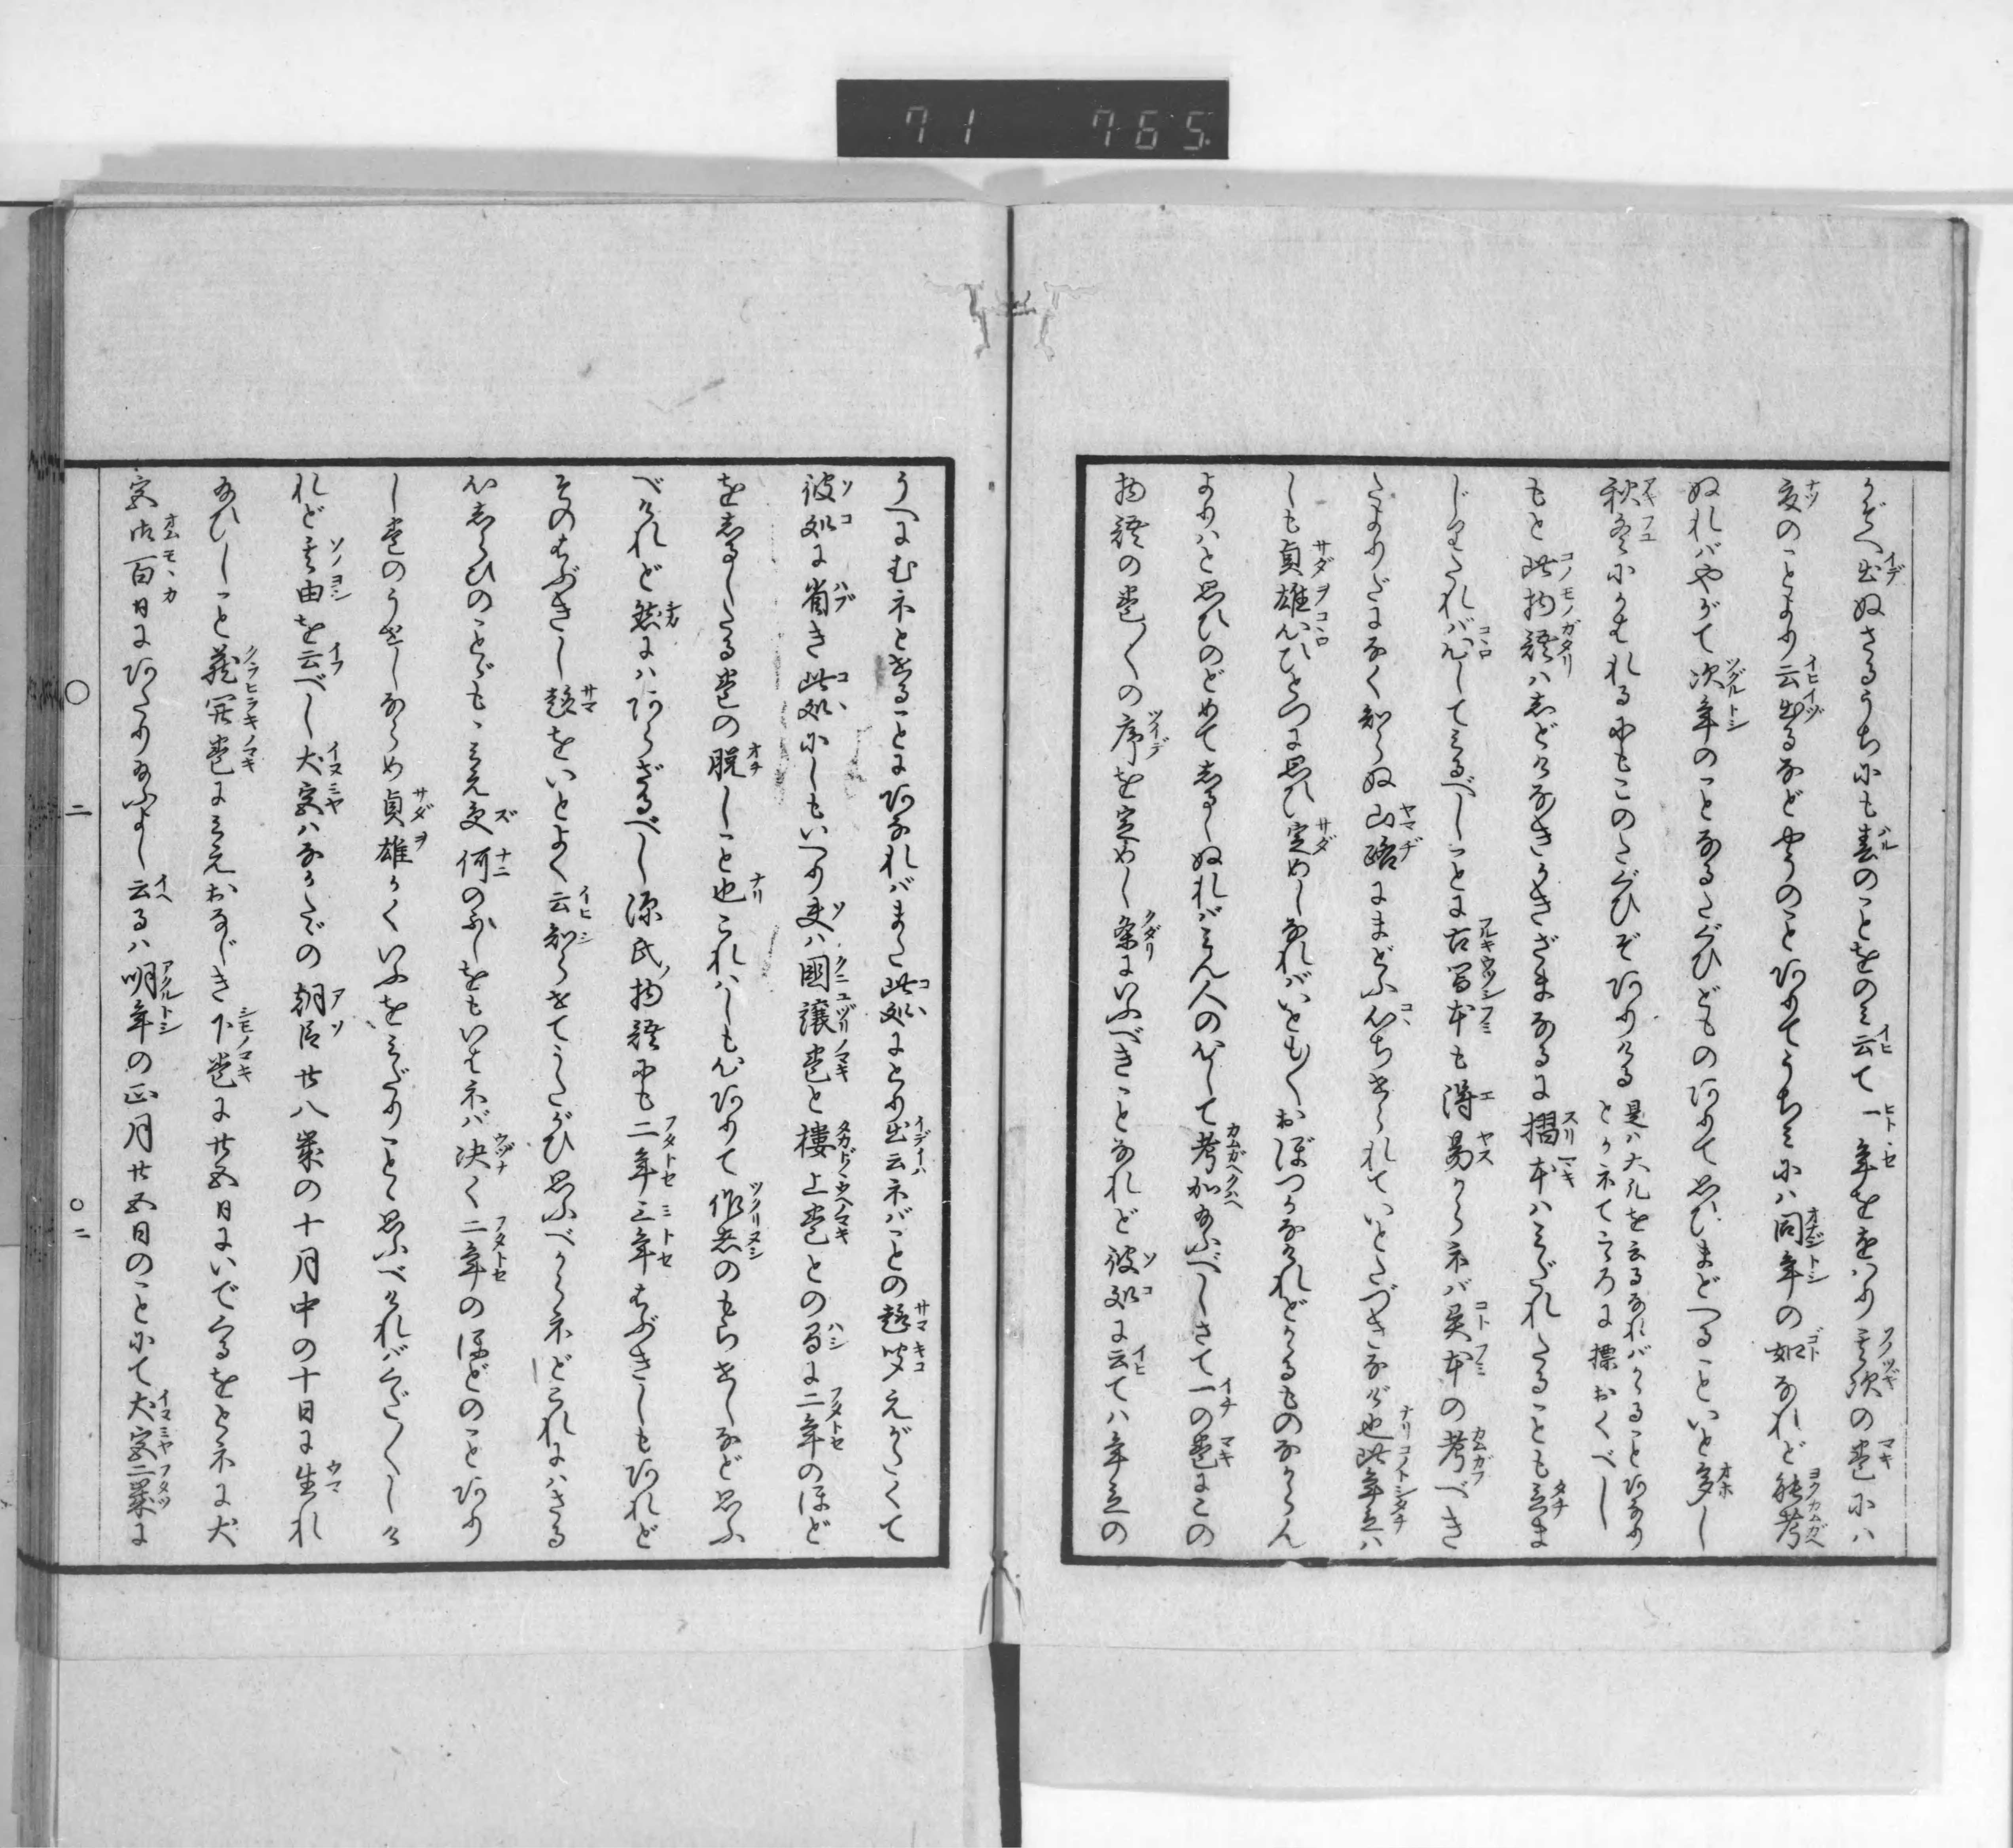 71 765
かぞへ出ぬさるうちにも春のことをのミ云て一年ををはり其次の巻にハ
夏のことより云出るなどやうのことありてうちミにハ同年の如なれど能考
ぬればやがて次年のことなるたぐひどもありて思ひまどへることいと多し
秋冬にかゝれるにもこのたぐひぞありける是ハ大凡を云るなればかゝることありとかネてこゝろに標おくべし
もと此物語ハしどけなきかきざまなるに摺本ハミだれたることも立ま
じりたれば心してミるべしことに古寫本も得易からネば異本の考べき
たよりだになく知らぬ山路にまどふ心ちせられていとたづきなきぞ也此年立ハ
しも貞雄心ひとつに思ひ定めしなればいともおぼつかなけれどかゝるものなからん
よりハと思ひのどめてしるしぬればミん人の心して考加給ふべしさて一の巻にこの
物語の巻〱の序を定めし条にいふべきことなれど彼処に云てハ年立の
うへにむネとせることにあなればまた此処にとり出云ネばことの趣聞えがたくて
彼処に省き此処にしもいへり夫ハ國譲巻と樓上巻との間に二年のほど
をしるしたる巻の脱しこと也これハしも心ありて作者のもらせしなど思ふ
べけれど然にハあらざるべし源氏ノ物語にも二年三年はぶきしもあれど
そのはぶきし趣をいとよく云知らせてうたがひ思ふべからネどこれにハさる
心しらひのことゞもゝミえ受何のふしをもいはネば决く二年のほどのことあり
し巻のうせしならめ貞雄かくいふをミだりことゝ思ふべければくだ〱しけ
れど其由を云べし犬宮ハなかたゞの朝臣廿八歳の十月中の十日に生れ
給ひしこと蔵開巻にミえおなじき下巻に廿五日にいでくるをとネに犬
宮御百日にあたり給ふよし云るハ明年の正月廿五日のことにて犬宮二歳に
二
二